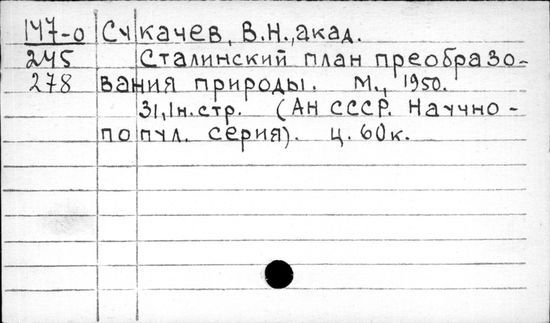 147-о Сукачев, В.Н., акад.
245 Сталинский план преобразо-
278 вания природы. М., 1950.
31,1н.стр. (АН СССР. Научно-
попул. серия). ц. 60к.